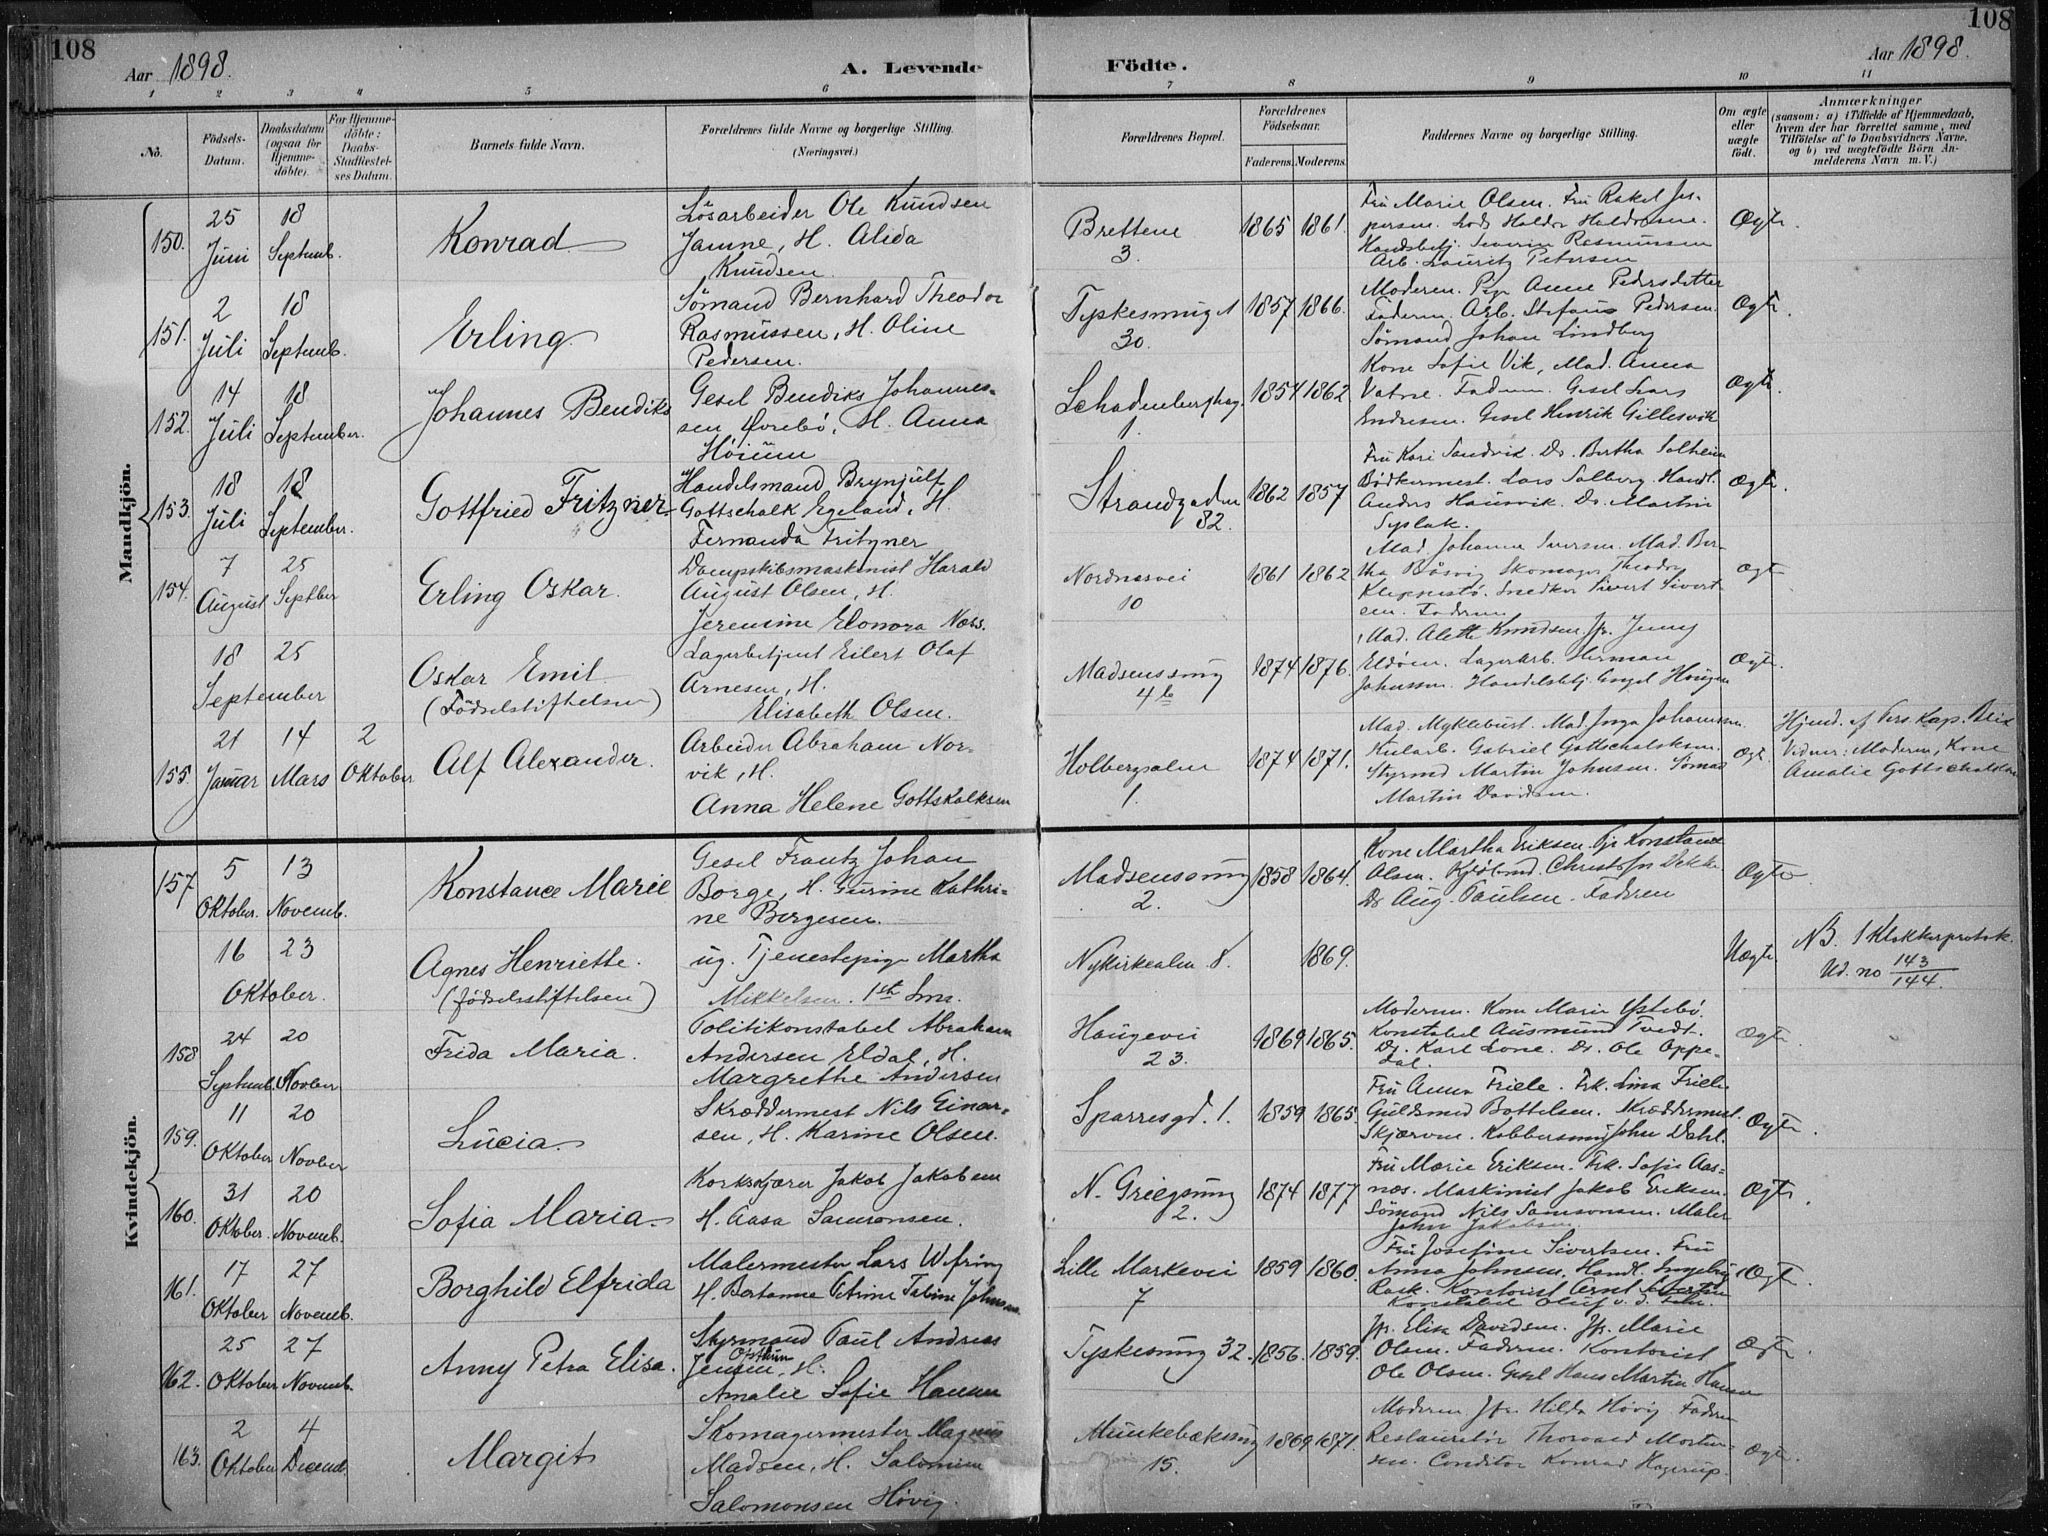 108
Aar 1898.
A. Levende Födte.
Aar 1898.
108
1 2 3 4 5 6 7 8 9 10 11
No.
Födsels-Datum.
Daabsdatum (ogsaa for Hjemme-döbte).
For Hjemme-döbte: Daabs-Stadfæstel-ses Datum.
Barnets fulde Navn.
Forældrenes fulde Navne og borgerlige Stilling.
(Næringsvei.)
Forældrenes Bopæl.
Forældrenes Födselsaar.
Faderens. Moderens.
Faddernes Navne og borgerlige Stilling.
Om ægte eller uægte födt.
Anmærkninger
(saasom: a) i Tilfælde af Hjemmedaab,
hvem der har forrettet samme, med
Tilföielse af to Daabsvidners Navne,
og b) ved uægtefödte Börn An-
melderens Navn m. V.)
Mandkjön.
150. 25 Juni 18 Septemb. Konrad
Løsarbeider Ole Knudsen
Janne, H. Alida
Knudsen.
Brettene 3. 1865 1861.
Fru Marie Olsen. Fru Rakel Jes-
persen. Lods Haldor Haldorsen.
Handelsbetj. Severin Rasmussen
Arb. Lauritz Petersen
Ægte.
151. 2 Juli 18 Septemb. Erling
Sömand Bernhard Theodor
Rasmussen, H. Oline
Pedersen.
Tyskesmug 30. 1857 1866.
Moderen. Pige Anne Pedersdatter
Faderen. Arb. Stefanus Pedersen.
Sömand Johan Lindberg
Ægte.
152. 14 Juli 18 September. Johannes Bendiks
Gesel Bendiks Johannes-
sen Øvrebö, H. Anna
Höium
1. 1854 1862
Kone Sofie Vik, Mad. Anna
Vatne. Faderen. Gesel Lars
Endresen. Gesel Henrik Gillesvik
Ægte.
153. 18 Juli 18 September. Gottfried Fritzner
Handelsmand Brynjulf
Gottschalk Egeland, H.
Fernanda Fritzner
Strandgaden 82. 1862 1857
Fru Kari Sandvik. Do. Bertha Solheim
Bödkermest. Lars Solberg. Handl.
Anders Hausvik. Do. Martin
Ægte.
154. 7 August 25 Septber Erling Oskar.
Dampskibsmaskinist Harald
August Olsen, H.
Jerensine Elonora Næss.
Nordnesvei 10 1861 1862
Mad. Johanne Iversen. Mad. Ber-
tha Skomager Theodor
Snedker Sivert Sivert-
sen. Faderen
Ægte
18 25 September Oskar Emil.
(Födselstiftelsen)
Lagerbetjent Eilert Olaf
Arnesen, H.
Elisabeth Olsen.
Madsenssmug 4b 1874 1876.
Mad. Alette Knudsen. Jfr. Jenny
Lagerarb. Herman
Johnsen. Handelsbetj. Engel Haugen
Ægte.
155. 21 Januar 14 Mars 2 Oktober Alf Alexander.
Arbeider Abraham Nor-
vik, H.
Anna Helene Gottskalksen
Holbergsalm. 1. 1874 1871.
Mad. Myklebust. Mad. Inga Johannsen.
Gabriel Gottschalksen.
Styrmd Martin Johnsen. Sömand
Martin Davidsen.
Ægte.
Hjemd. af Pers. Kap. Blix
Vidner: Moderen, Kone
Amalie Gottschalksen
Kvindekjön.
157. 5 Oktober. 13 Novemb. Konstance Marie
Gesel Frantz Johan
Borge, H. Gurine Kathri-
ne Børgesen.
Madsenssmug 2. 1858 1864.
Kone Martha Eriksen. Pige Konstance
Olsen. Kjöbmd. Christoffer Dekke
Do Aug. Paulsen. Faderen
Ægte
16 23 Oktober. Agnes Henriette.
(födselsstiftelsen)
ug. Tjenestepige Martha
Mikkelsen. 1ste Lms.
Nykirkealm 8. 1869.
Uægte.
NB. I Klokkerprotok.
Ud. no 143/144.
158 24 Septemb. 20 Novber Frida Maria.
Politikonstabel Abraham
Andersen Eldal, H.
Margrethe Andersen
Haugevei 23. 1869 1865.
Moderen. Kone Marie Ystebö.
Konstabel Ausmund Tvedt.
Do. Karl Lone. Do. Ole Oppe-
dal.
Ægte.
159. 11 Oktober 20 Novber Lucia
Skræddermest Nils Einar-
sen, H. Karine Olsen.
Sparresgd. 1. 1859 1865.
Fru Anna Friele. Frk. Lina Friele.
Guldsmed Bottelsen. Skræddermest.
Skjærven. Kobbersmed John Dahl.
Ægte.
160. 31 Oktober. 20 Novemb. Sofia Maria.
Korkskjærer Jakob Jakobsen
H. Aasa Samsonsen.
N. Griegsmug 2. 1874 1877
Fru Marie Eriksen. Frk. Sofie Aas-
næs. Maskinist Jakob Eriksen.
Sömand Nils Samsonsen. Maler
John Jakobsen.
Ægte.
161. 17 Oktober 27 Novemb. Borghild Elfrida
Malermester Lars Wefring
H. Bertanne Petrine Tabine Johnsen
Lille Markevei 7 1859 1860.
Fru Josefine Sivertsen. Fru
Anna Johnsen. Handl. Ingebrig
Rask. Kontorist Arnt Sivertsen
Konstabel Oluf v. d. Lehr.
Ægte.
162. 25 Oktober 27 Novemb. Anny Petra Elisa.
Styrmand Paul Andreas
Jensen, H.
Amalie Sofie Hansen
Tyskesmug 32. 1856. 1859.
Jfr. Elisa Davidsen. Jfr. Marie
Olsen. Faderen. Kontorist
Ole Olsen. Gesel Hans Martin Hansen
Ægte.
163. 2 Oktober 4 Decemb. Margit
Skomagermester Magnus
Madsen, H. Salomine
Salomonsen Hövig.
Munkebæksmug 15. 1869 1871.
Moderen Jfr. Hilda Hövig Faderen
Restauratör Thorvald Morten-
sen. Conditor Konrad Hagerup.
Ægte.